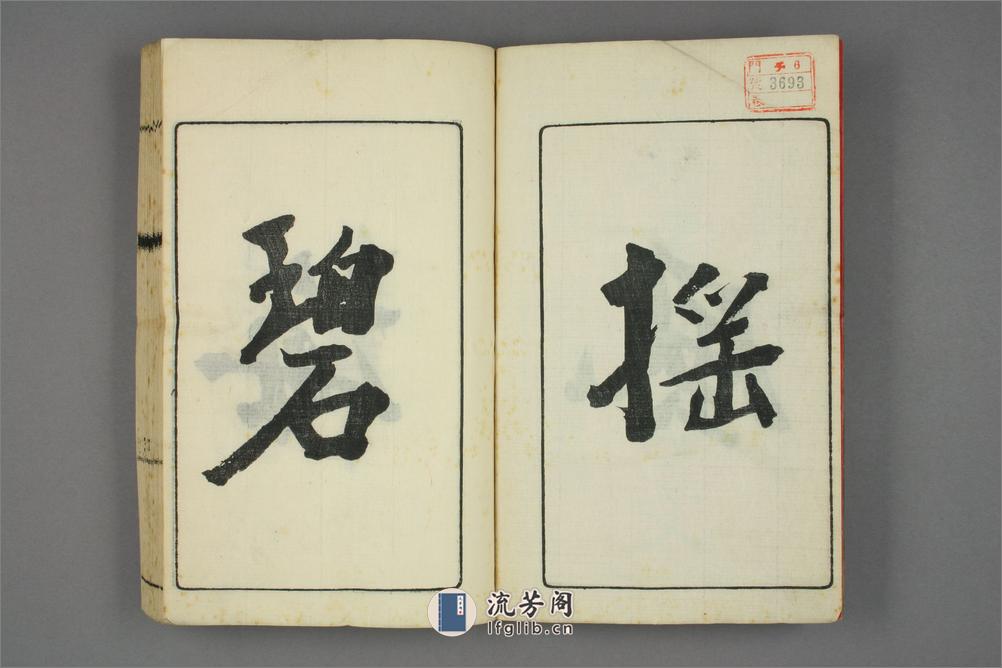 搖
碧
門 子 6
號 3693
流芳阁
lfglib.cn